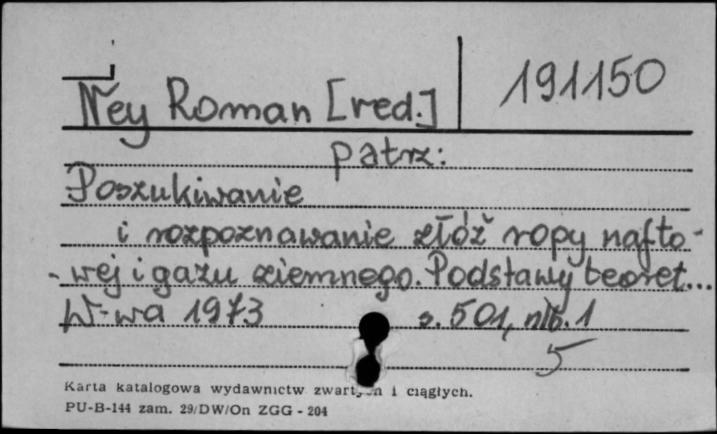 Ney Roman [red.]
191150
patrz:
Poszukiwanie
i rozpoznawanie złóż ropy nafto-
-wej i gazu ziemnego. Podstawy teoret...
W-wa 1973 s. 501, nlb. 1
5
Karta katalogowa wydawnictw zwartych i ciągłych.
PU-B-144 zam. 29/DW/On ZGG - 204